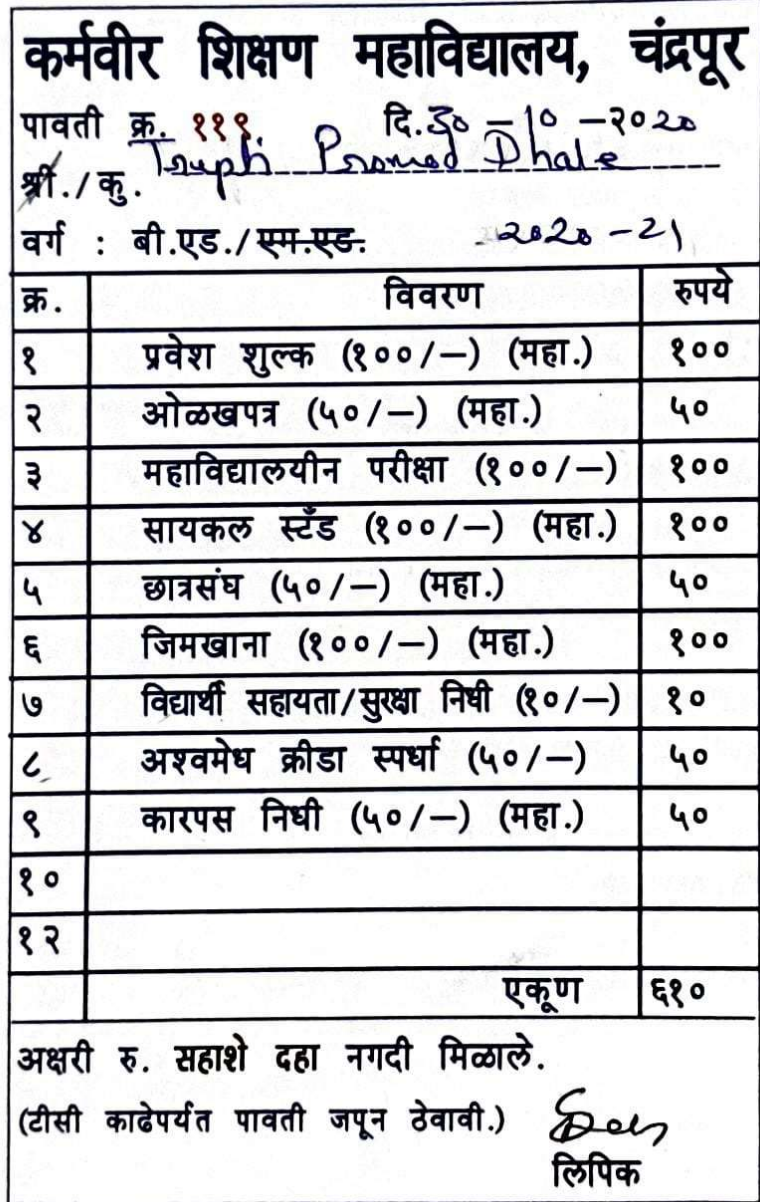 कर्मवीर शिक्षण महाविद्यालय, चंद्रपूर
पावती क्र. ११९ दि. 30 - 10 - २०२०
श्री./ कु. Trupti Pramod Dhale
वर्ग : बी.एड./ एम.एड. २०२० - 21
क्र. विवरण रुपये
१ प्रवेश शुल्क (१००/—) (महा.) १००
२ ओळखपत्र (५०/—) (महा.) ५०
३ महाविद्यालयीन परीक्षा (१००/—) १००
४ सायकल स्टँड (१००/—) (महा.) १००
५ छात्रसंघ (५०/—) (महा.) ५०
६ जिमखाना (१००/—) (महा.) १००
७ विद्यार्थी सहायता/सुरक्षा निधी (१०/—) १०
८ अश्वमेध क्रीडा स्पर्धा (५०/—) ५०
९ कारपस निधी (५०/—) (महा.) ५०
१०
१२
एकूण ६१०
अक्षरी रु. सहाशे दहा नगदी मिळाले.
(टीसी काढेपर्यत पावती जपून ठेवावी.)
लिपिक